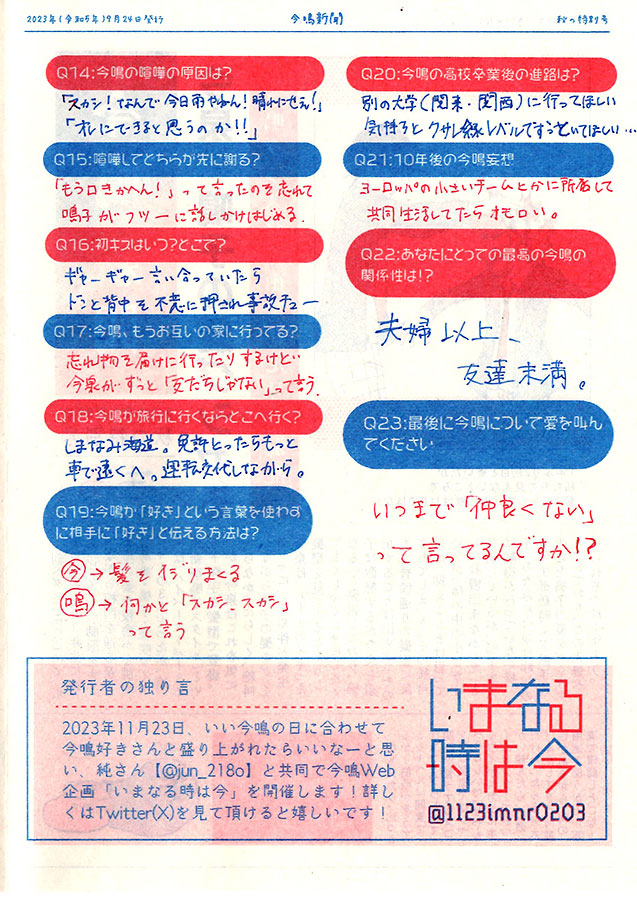 2023年(令和5年)9月24日発行
今鳴新聞
秋の特別号
Q14:今鳴の喧嘩の原因は?
「スカシ!なんで今日雨やねん!晴れにせえ!」
「オレにできると思うのか!!」
Q15:喧嘩してどちらが先に謝る?
「もう口きかへん!」って言ったのを忘れて
鳴子がフツーに話しかけはじめる.
Q16:初キスはいつ?どこで?
ギャーギャー言い合っていたら
ドンと背中を不意に押され事故チュー
Q17:今鳴、もうお互いの家に行ってる?
忘れ物を届けに行ったりするけど
今泉がずっと「友だちじゃない」って言う.
Q18:今鳴が旅行に行くならどこへ行く?
しまなみ海道。免許とったらもっと
車で遠くへ。運転交代しながら。
Q19:今鳴が「好き」という言葉を使わず
に相手に「好き」と伝える方法は?
今→髪をイジりまくる
鳴→何かと「スカシ、スカシ」
って言う
Q20:今鳴の高校卒業後の進路は?
別の大学(関東・関西)に行ってほしい
気持ちとクサレ縁レベルでずっといてほしい…
Q21:10年後の今鳴妄想
ヨーロッパの小さいチームとかに所属して
共同生活してたらオモロい。
Q22:あなたにとっての最高の今鳴の
関係性は!?
夫婦以上、
友達未満。
Q23:最後に今鳴について愛を叫ん
でください
いつまで「仲良くない」
って言ってるんですか!?
発行者の独り言
2023年11月23日、いい今鳴の日に合わせて
今鳴好きさんと盛り上がれたらいいなーと思
い、純さん【@jun_218o】と共同で今鳴Web
企画「いまなる時は今」を開催します!詳し
くはTwitter(X)を見て頂けると嬉しいです!
いまなる
時は今
@1123imnr0203